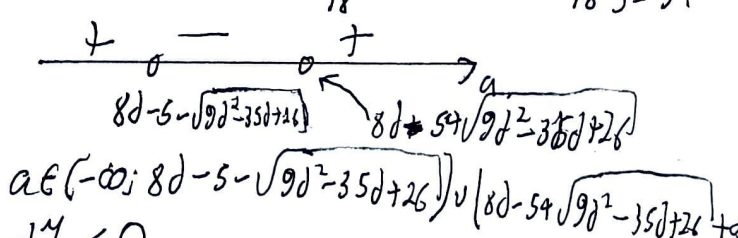 18 18·3=54
+ — + a
8d-5-√9d²-35d+26 8d-5+√9d²-35d+26
a∈(-∞; 8d-5-√9d²-35d+26)∪(8d-5+√9d²-35d+26 +∞
< 0